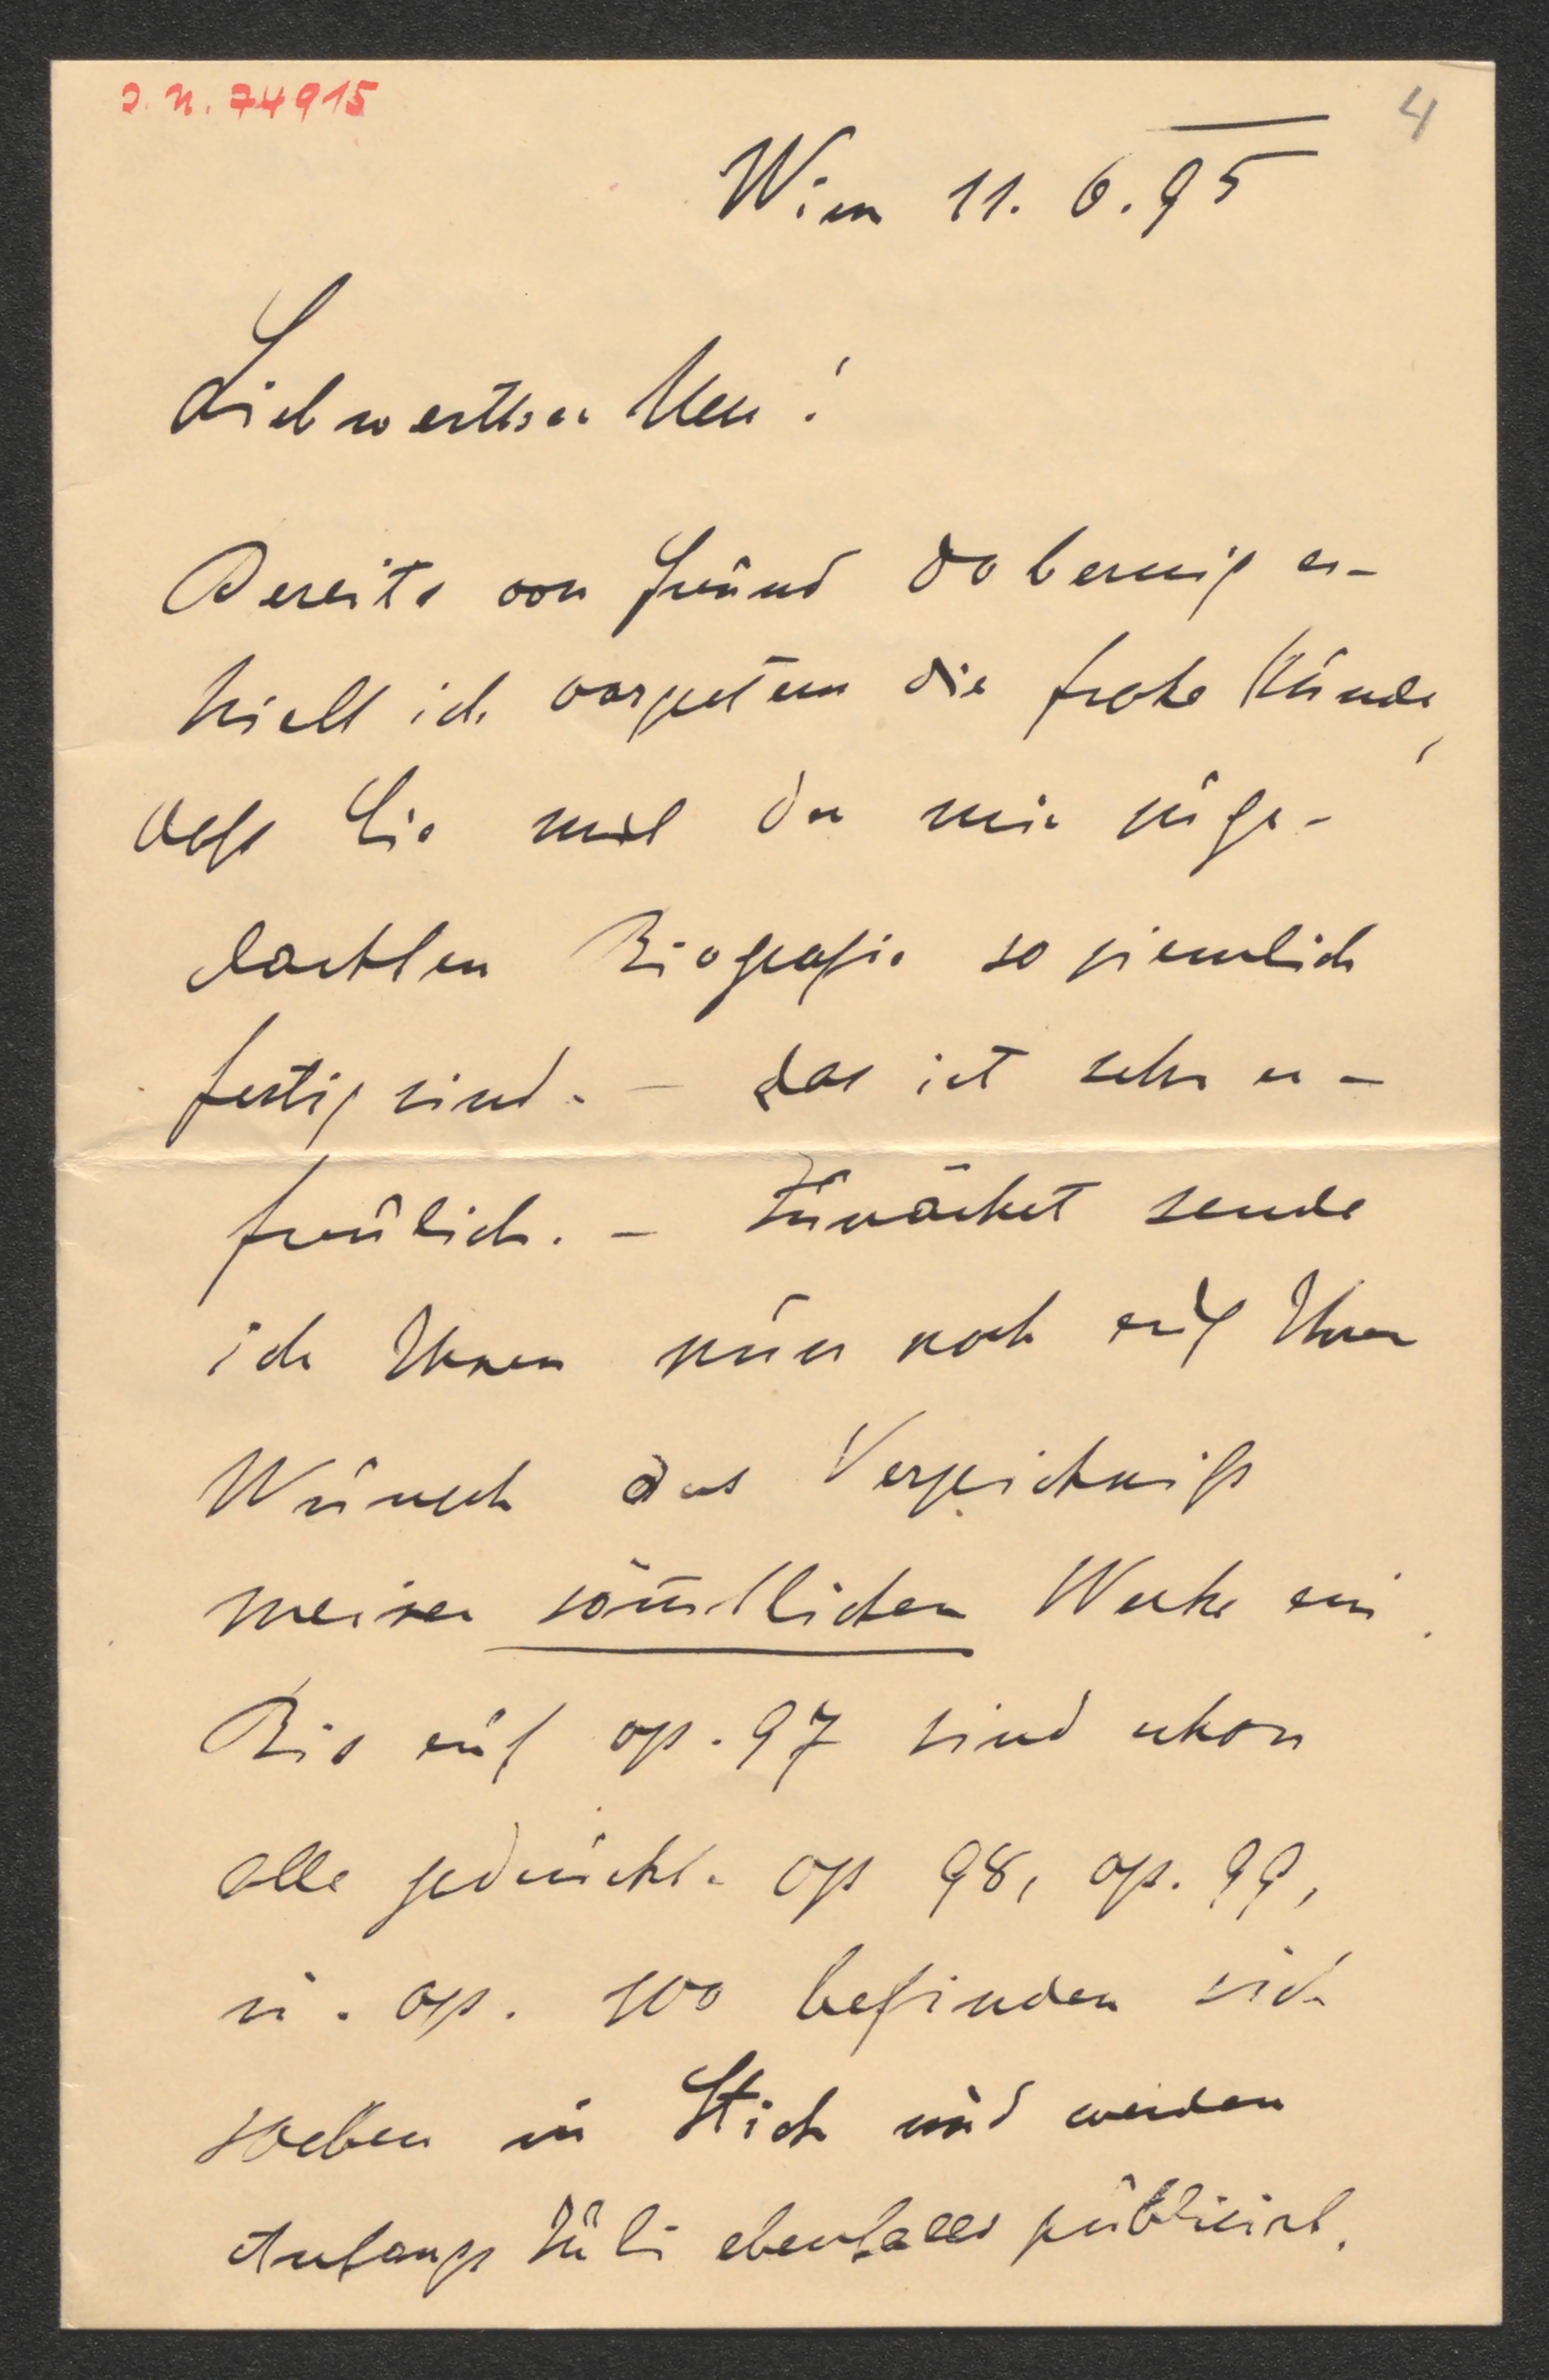 J. N. 74915
4
Wien 11. 6. 95
Liebwerther Herr!
Bereits von Freund Dobernig er-
hielt ich vorgestern die frohe Kunde,
daß Sie mit der mir zuge-
dachten Biografie so ziemlich
fertig sind. – das ist sehr er-
freulich. – Zunächst sende
ich Ihnen nun noch auf Ihren
Wunsch das Verzeichniß
meiner sämtlichen Werke ein.
Bis auf op. 97 sind schon
alle gedruckt. op 98, op. 99,
u. op. 100 befinden sich
soeben in Stich und werden
Anfangs Juli ebenfalls publicirt.